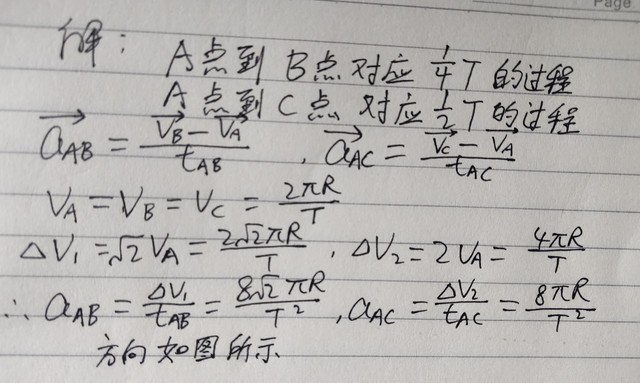 Page
解：A点到B点对应 1/4 T 的过程
A点到C点对应 1/2 T 的过程
\vec{a_{AB}} = \frac{\vec{V_B} - \vec{V_A}}{t_{AB}} , \vec{a_{AC}} = \frac{\vec{V_C} - \vec{V_A}}{t_{AC}}
V_A = V_B = V_C = \frac{2πR}{T}
ΔV_1 = \sqrt{2} V_A = \frac{2\sqrt{2}πR}{T} , ΔV_2 = 2V_A = \frac{4πR}{T}
∴ a_{AB} = \frac{ΔV_1}{t_{AB}} = \frac{8\sqrt{2}πR}{T^2} , a_{AC} = \frac{ΔV_2}{t_{AC}} = \frac{8πR}{T^2}
方向如图所示